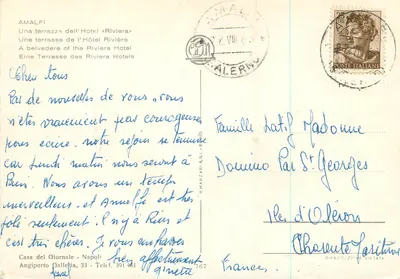 AMALFI
Una terrazza dell'Hotel «Riviera»
Une terrasse de l'Hôtel Rivière
A belvedere of the Riviera Hotel
Eine Terrasse des Riviera Hotels
Cher tous
Pas de nouvelles de vous, vous
n'êtes vraiment pas courageuses
pour écrire. notre séjour se termine
car Lundi matin nous serons à
Paris. Nous avons un temps
merveilleux et Amalfi est très
joli seulement. Il n'y a Rien et
c'est très chère. Je vous embrasse
bien affectueusement
ginette
Famille Latif Madonne
Domino Par St Georges
Iles d'Oléron
Charente Maritime
France.
Casa del Giornale - Napoli
Angiporto Galleria, 33 - Tel.
POSTE ITALIANE
SALERNO